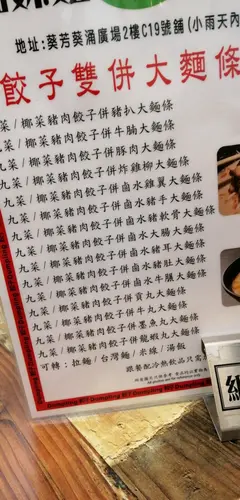 地址:葵芳葵涌廣場2樓C19號舖 (小雨天內
餃子雙併大麵條
菜 / 椰菜豬肉餃子併豬扒大麵條
九菜 / 椰菜豬肉餃子併牛腩大麵條
九菜 / 椰菜豬肉餃子併豚肉大麵條
九菜 / 椰菜豬肉餃子併炸雞柳大麵條
九菜 / 椰菜豬肉餃子併鹵水雞翼大麵條
九菜 / 椰菜豬肉餃子併鹵水豬手大麵條
九菜 / 椰菜豬肉餃子併鹵水豬軟骨大麵條
九菜 / 椰菜豬肉餃子併鹵水大腸大麵條
九菜 / 椰菜豬肉餃子併鹵水豬耳大麵條
九菜 / 椰菜豬肉餃子併鹵水豬肚大麵條
九菜 / 椰菜豬肉餃子併鹵水牛腱大麵條
九菜 / 椰菜豬肉餃子併貢丸大麵條
九菜 / 椰菜豬肉餃子併墨魚丸大麵條
九菜 / 椰菜豬肉餃子併龍蝦丸大麵條
可轉: 拉麵 / 台灣麵 / 米線 / 湯飯
跟餐配冷熱飲品只需